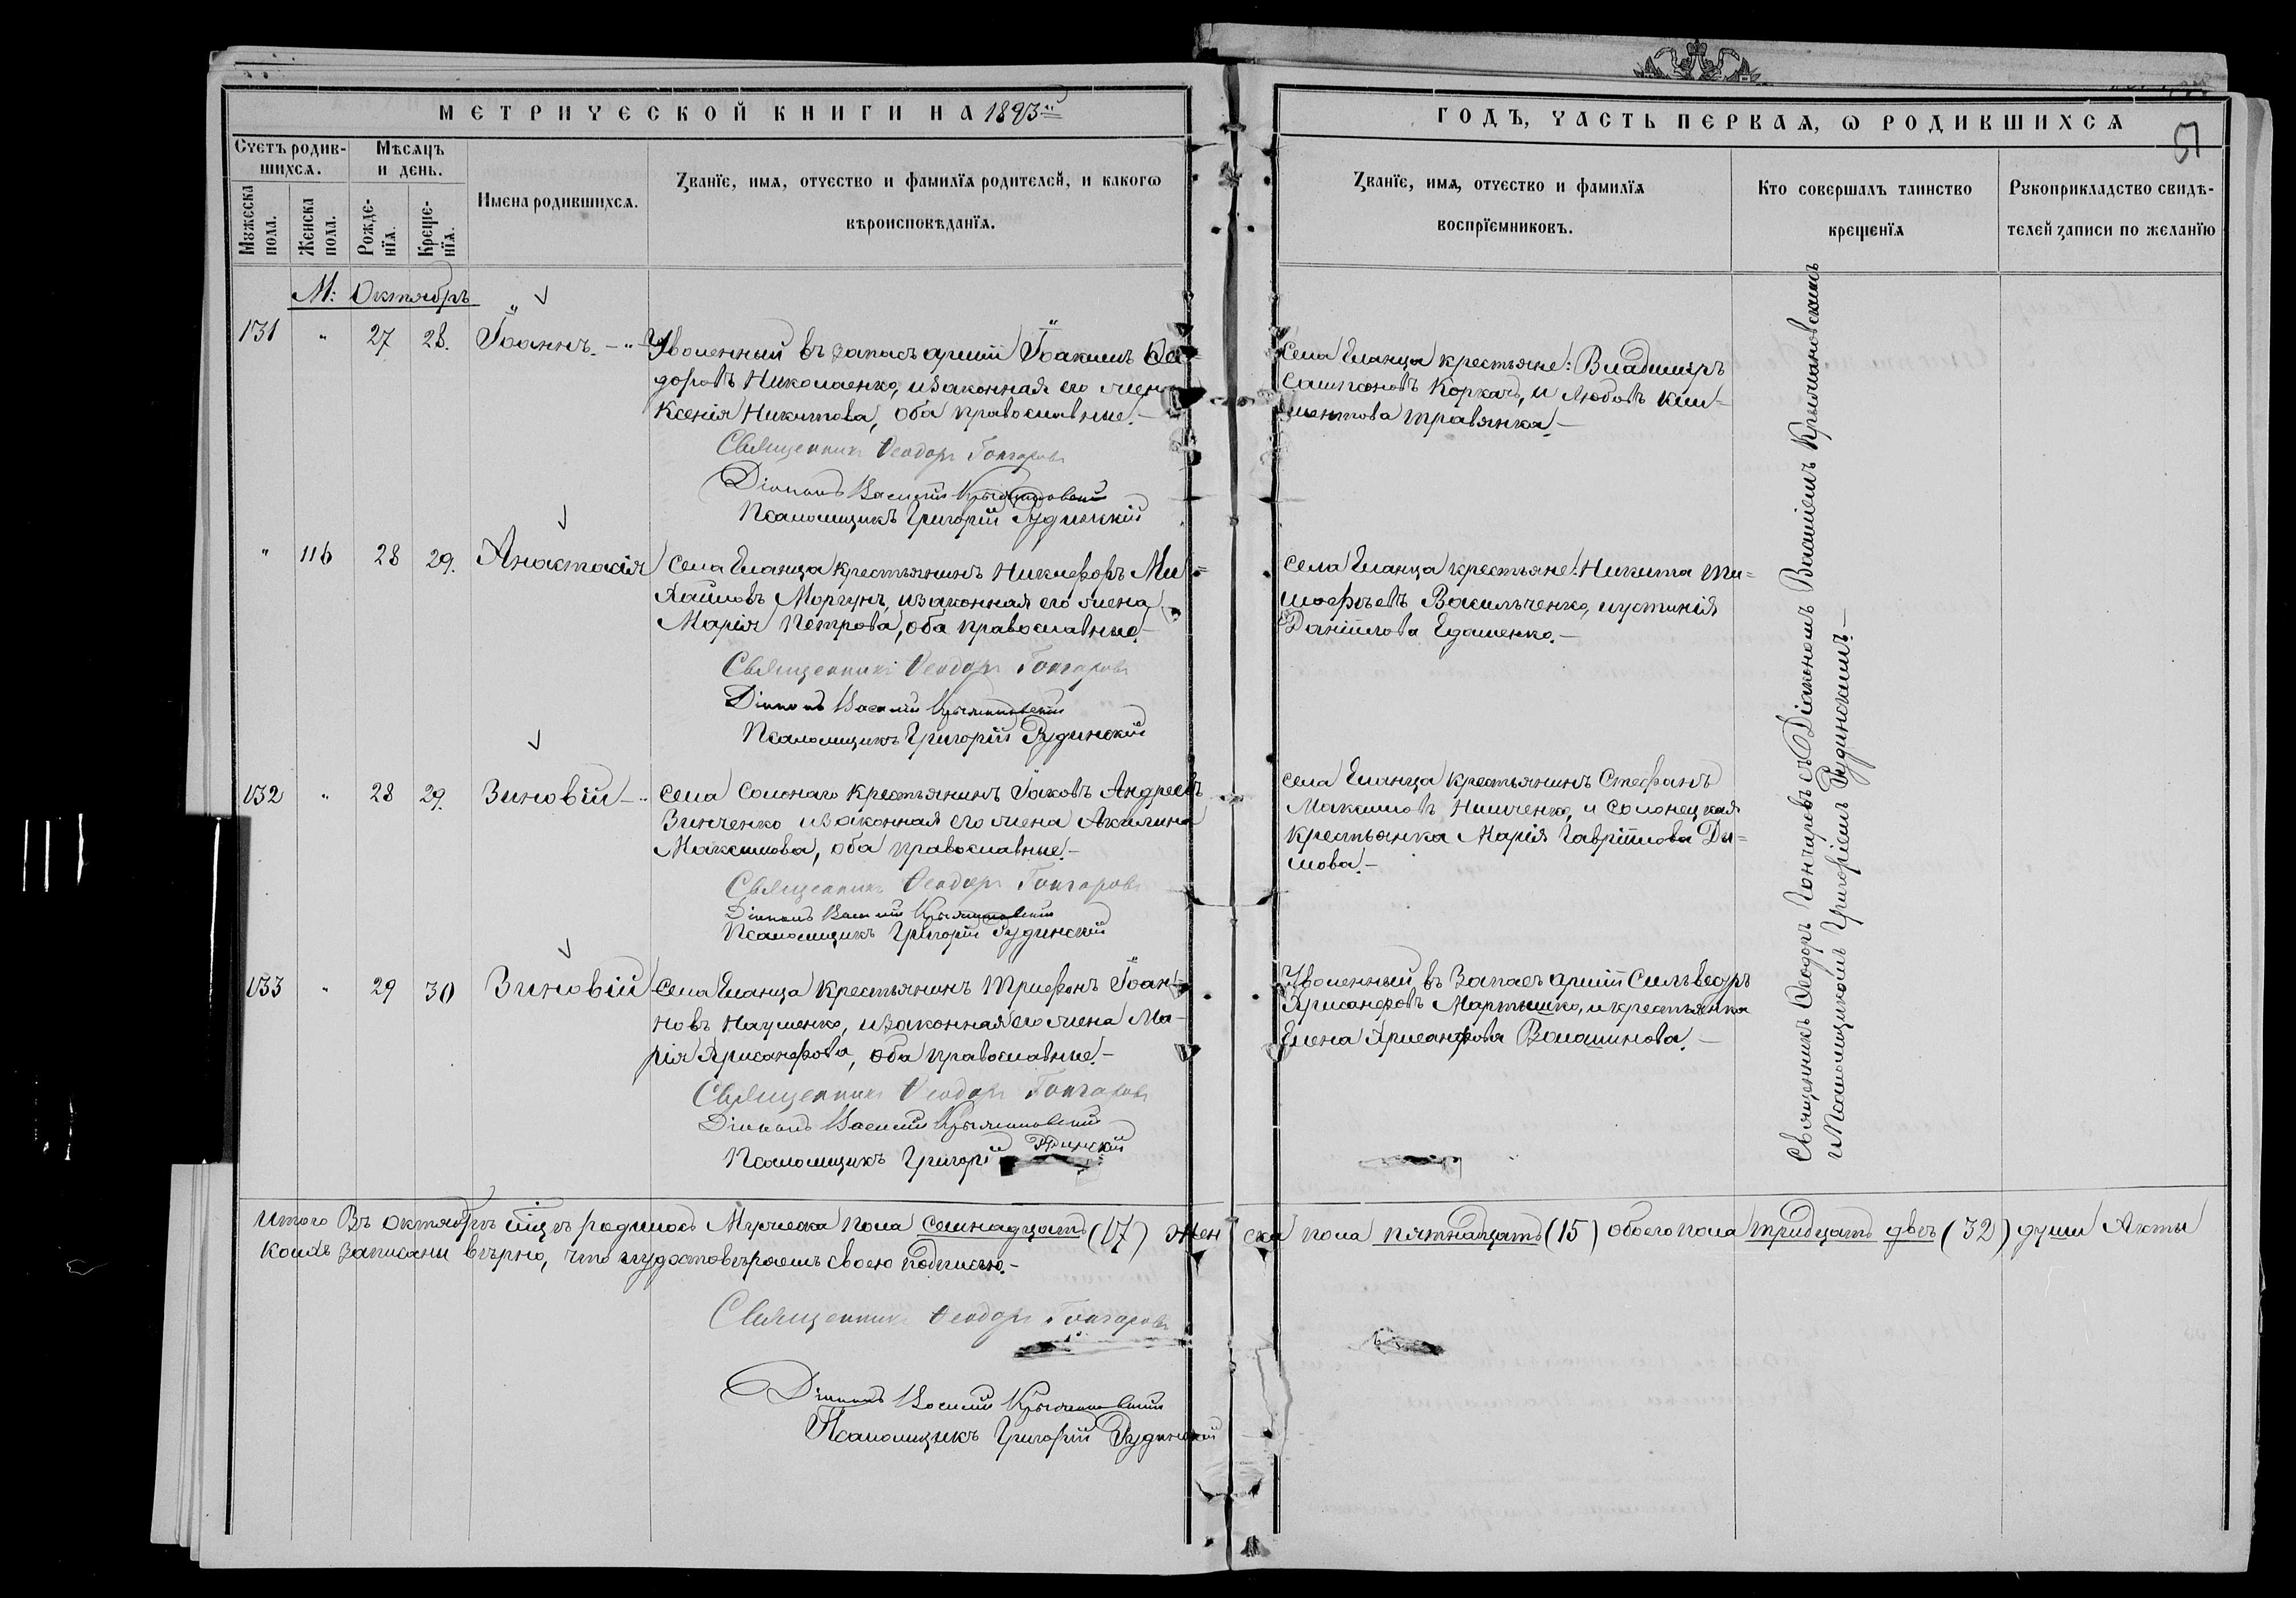 МЕТРИЧЕСКОЙ КНИГИ НА 1893й
ГОДЪ, ЧАСТЬ ПЕРВАЯ, Ѡ РОДИВШИХСЯ
51
Счетъ родив-
шихся.
Мѣсяцъ
и день.
Мужеска
пола.
Женска
пола.
Рожде-
нїя.
Креще-
нїя.
Имена родившихся.
Званїе, имя, отчество и фамилїя родителей, и какогѡ
вѣроисповѣданїя.
Званїе, имя, отчество и фамилїя
воспрїемниковъ.
Кто совершалъ таинство
крещенїя
Рукоприкладство свидѣ-
телей записи по желанїю
М: Октябрь
131 " 27 28. Іоаннъ.
Уволенный въ запасъ арміи Іоакимъ Ѳео-
доровъ Николаенко, и законная его жена
Ксенія Никитова, оба православные.-
Священникъ Ѳеодоръ Гончаровъ
Діаконъ Василій Крыжановскій
Псаломщикъ Григорій Рудинскій
Села Еланца крестьяне: Владимиръ
Сампсоновъ Коркачъ, и Любовь Кли-
ментова Травянка.-
" 116 28 29. Анастасія
Села Еланца крестьянинъ Никифоръ Ми-
хайловъ Моргунъ, и законная его жена
Марія Петрова, оба православные.-
Священникъ Ѳеодоръ Гончаровъ
Діаконъ Василій Крыжановскій
Псаломщикъ Григорій Рудинскій
Села Еланца крестьяне: Никита Ти-
моѳѣевъ Васильченко, иустинія
Даніилова Едаменко.-
132 " 28 29. Зиновій
Села Солонаго крестьянинъ Іаковъ Андреевъ
Зинченко и законная его жена Акилина
Максимова, оба православные.-
Священникъ Ѳеодоръ Гончаровъ
Діаконъ Василій Крыжановскій
Псаломщикъ Григорій Рудинскій
Села Еланца крестьянинъ Стефанъ
Максимовъ Нимченко, и Солонецкая
крестьянка Марія Гавріилова Ды-
мова.-
133 " 29 30 Зиновій
Села Еланца крестьянинъ Трифонъ Іоан-
новъ Науменко, и законная его жена Ма-
рія Хрисанфова, оба православные.-
Священникъ Ѳеодоръ Гончаровъ
Діаконъ Василій Крыжановскій
Псаломщикъ Григорій Рудинскій
Уволенный въ запасъ арміи Сильвестръ
Хрисанфовъ Мартышко, и крестьянка
Елена Хрисанфова Волошинова.-
Священникъ Ѳеодоръ Гончаровъ съ Діакономъ Василіемъ Крыжановскимъ
и Псаломщикомъ Григоріемъ Рудинскимъ.-
Итого въ октябрѣ мцѣ родилось Мужеска пола семнадцать (17) женска пола пятнадцать (15) обоего пола тридцать двѣ (32) души Акты
коихъ записани вѣрно, что и удостовѣряемъ своею подписью.-
Священникъ Ѳеодоръ Гончаровъ
Діаконъ Василій Крыжановскій
Псаломщикъ Григорій Рудинскій